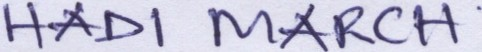 HADI MARCH